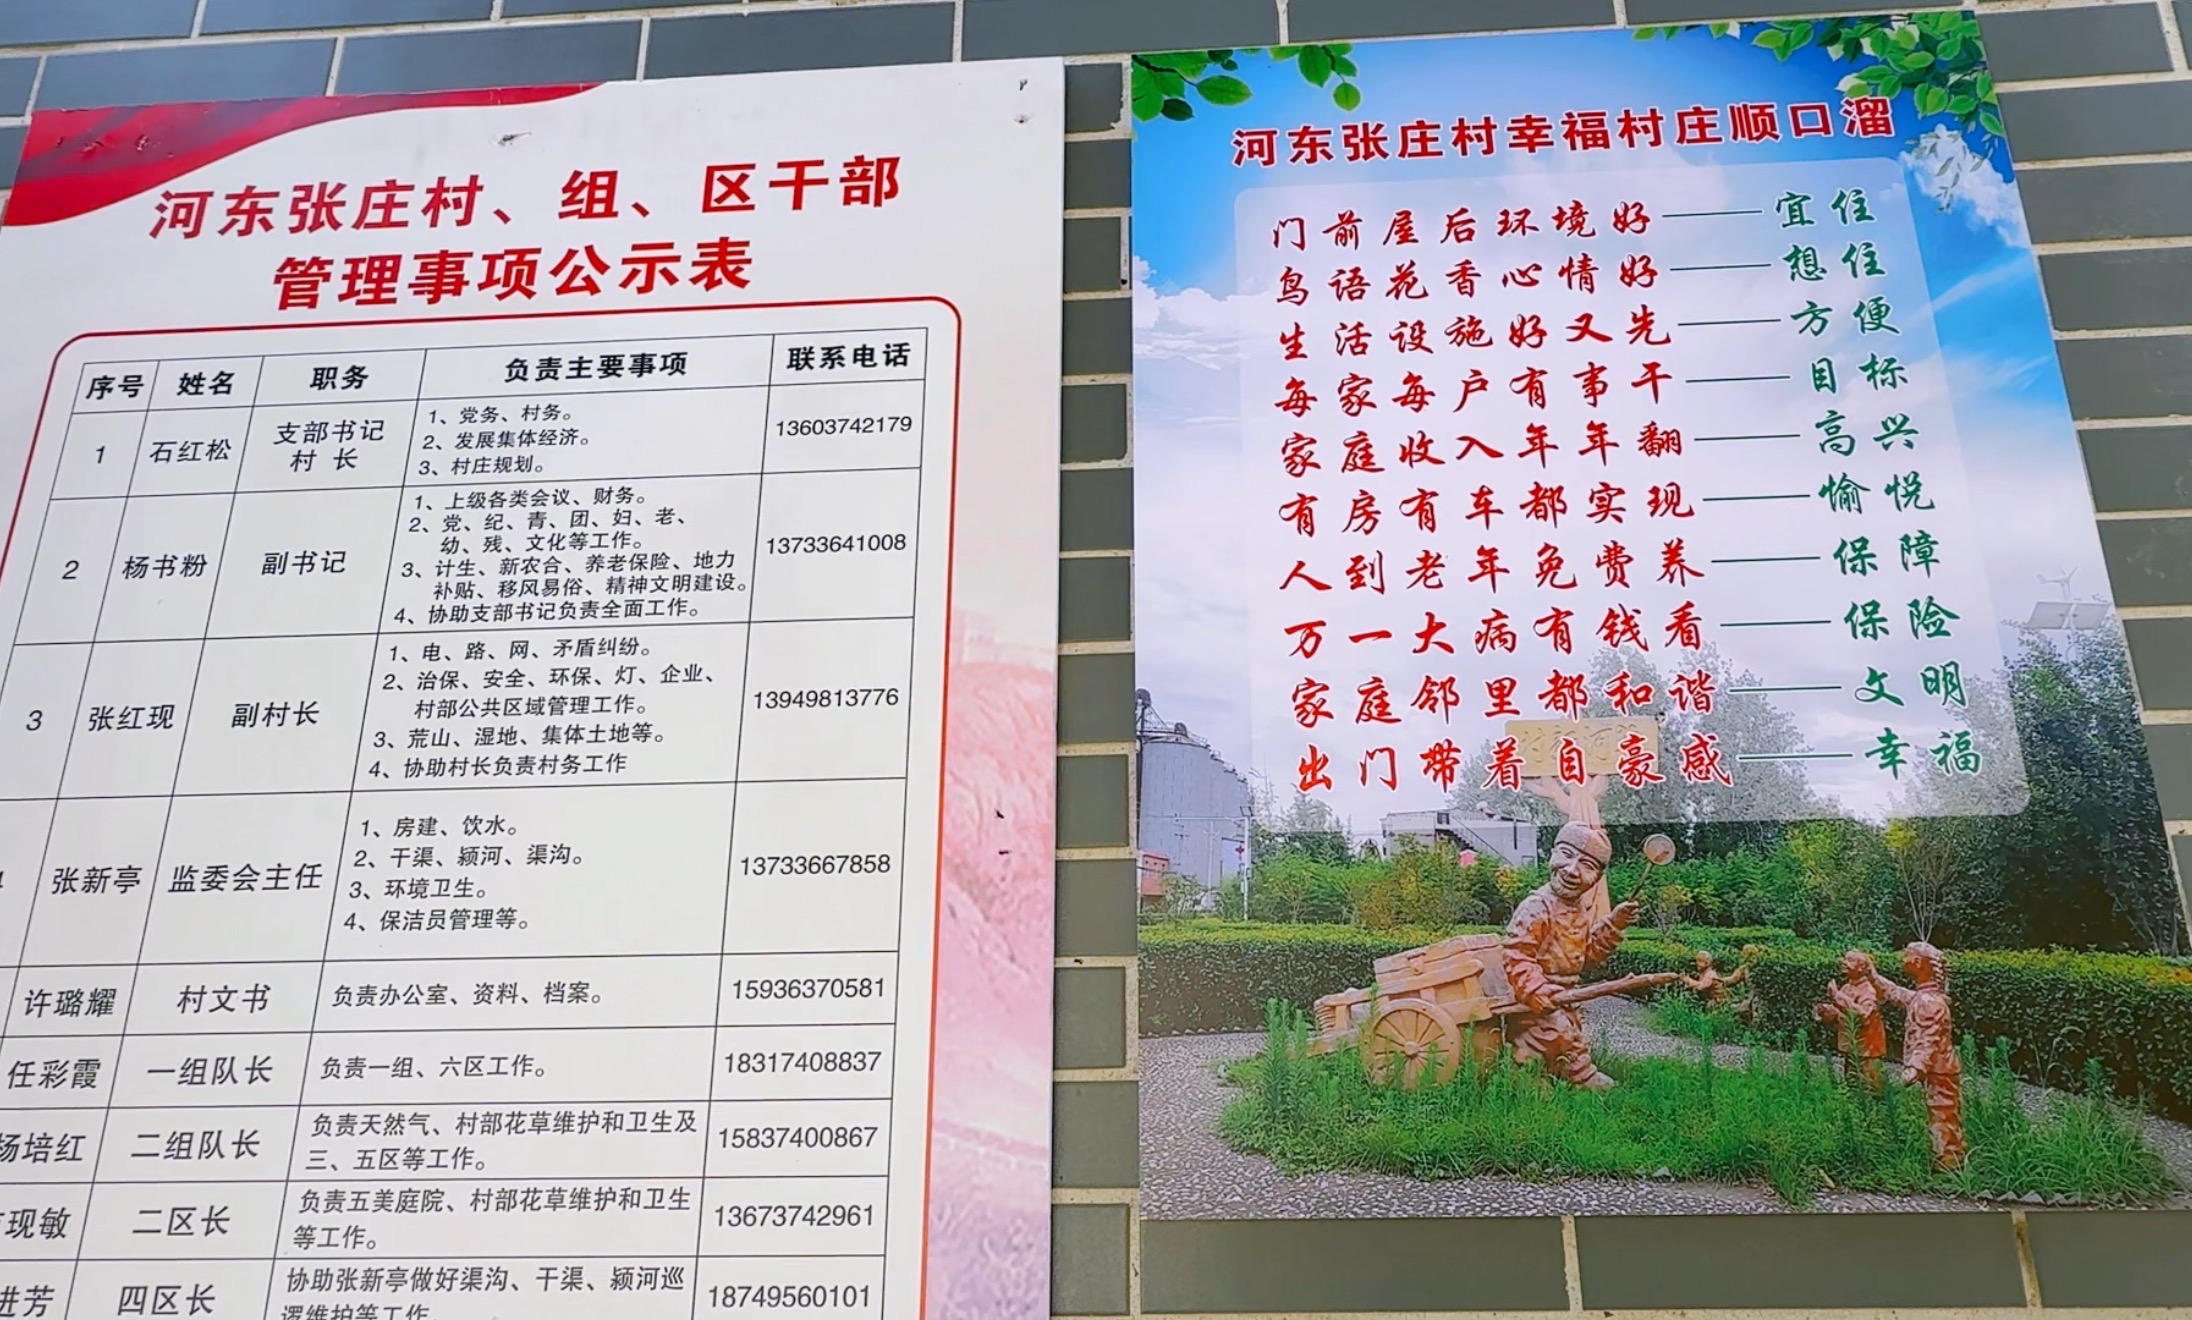 河东张庄村、组、区干部
管理事项公示表
序号 姓名 职务 负责主要事项 联系电话
1 石红松 支部书记 村 长 13603742179
1、党务、村务。
2、发展集体经济。
3、村庄规划。
2 杨书粉 副书记 13733641008
1、上级各类会议、财务。
2、党、纪、青、团、妇、老、
幼、残、文化等工作。
3、计生、新农合、养老保险、地力
补贴、移风易俗、精神文明建设。
4、协助支部书记负责全面工作。
3 张红现 副村长 13949813776
1、电、路、网、矛盾纠纷。
2、治保、安全、环保、灯、企业、
村部公共区域管理工作。
3、荒山、湿地、集体土地等。
4、协助村长负责村务工作
张新亭 监委会主任 13733667858
1、房建、饮水。
2、干渠、颍河、渠沟。
3、环境卫生。
4、保洁员管理等。
许璐耀 村文书 负责办公室、资料、档案。 15936370581
任彩霞 一组队长 负责一组、六区工作。 18317408837
杨培红 二组队长 15837400867
负责天然气、村部花草维护和卫生及
三、五区等工作。
现敏 二区长 13673742961
负责五美庭院、村部花草维护和卫生
等工作。
进芳 四区长 18749560101
协助张新亭做好渠沟、干渠、颍河巡
逻维护等工作。
河东张庄村幸福村庄顺口溜
门前屋后环境好——宜住
鸟语花香心情好——想住
生活设施好又先——方便
每家每户有事干——目标
家庭收入年年翻——高兴
有房有车都实现——愉悦
人到老年免费养——保障
万一大病有钱看——保险
家庭邻里都和谐——文明
出门带着自豪感——幸福